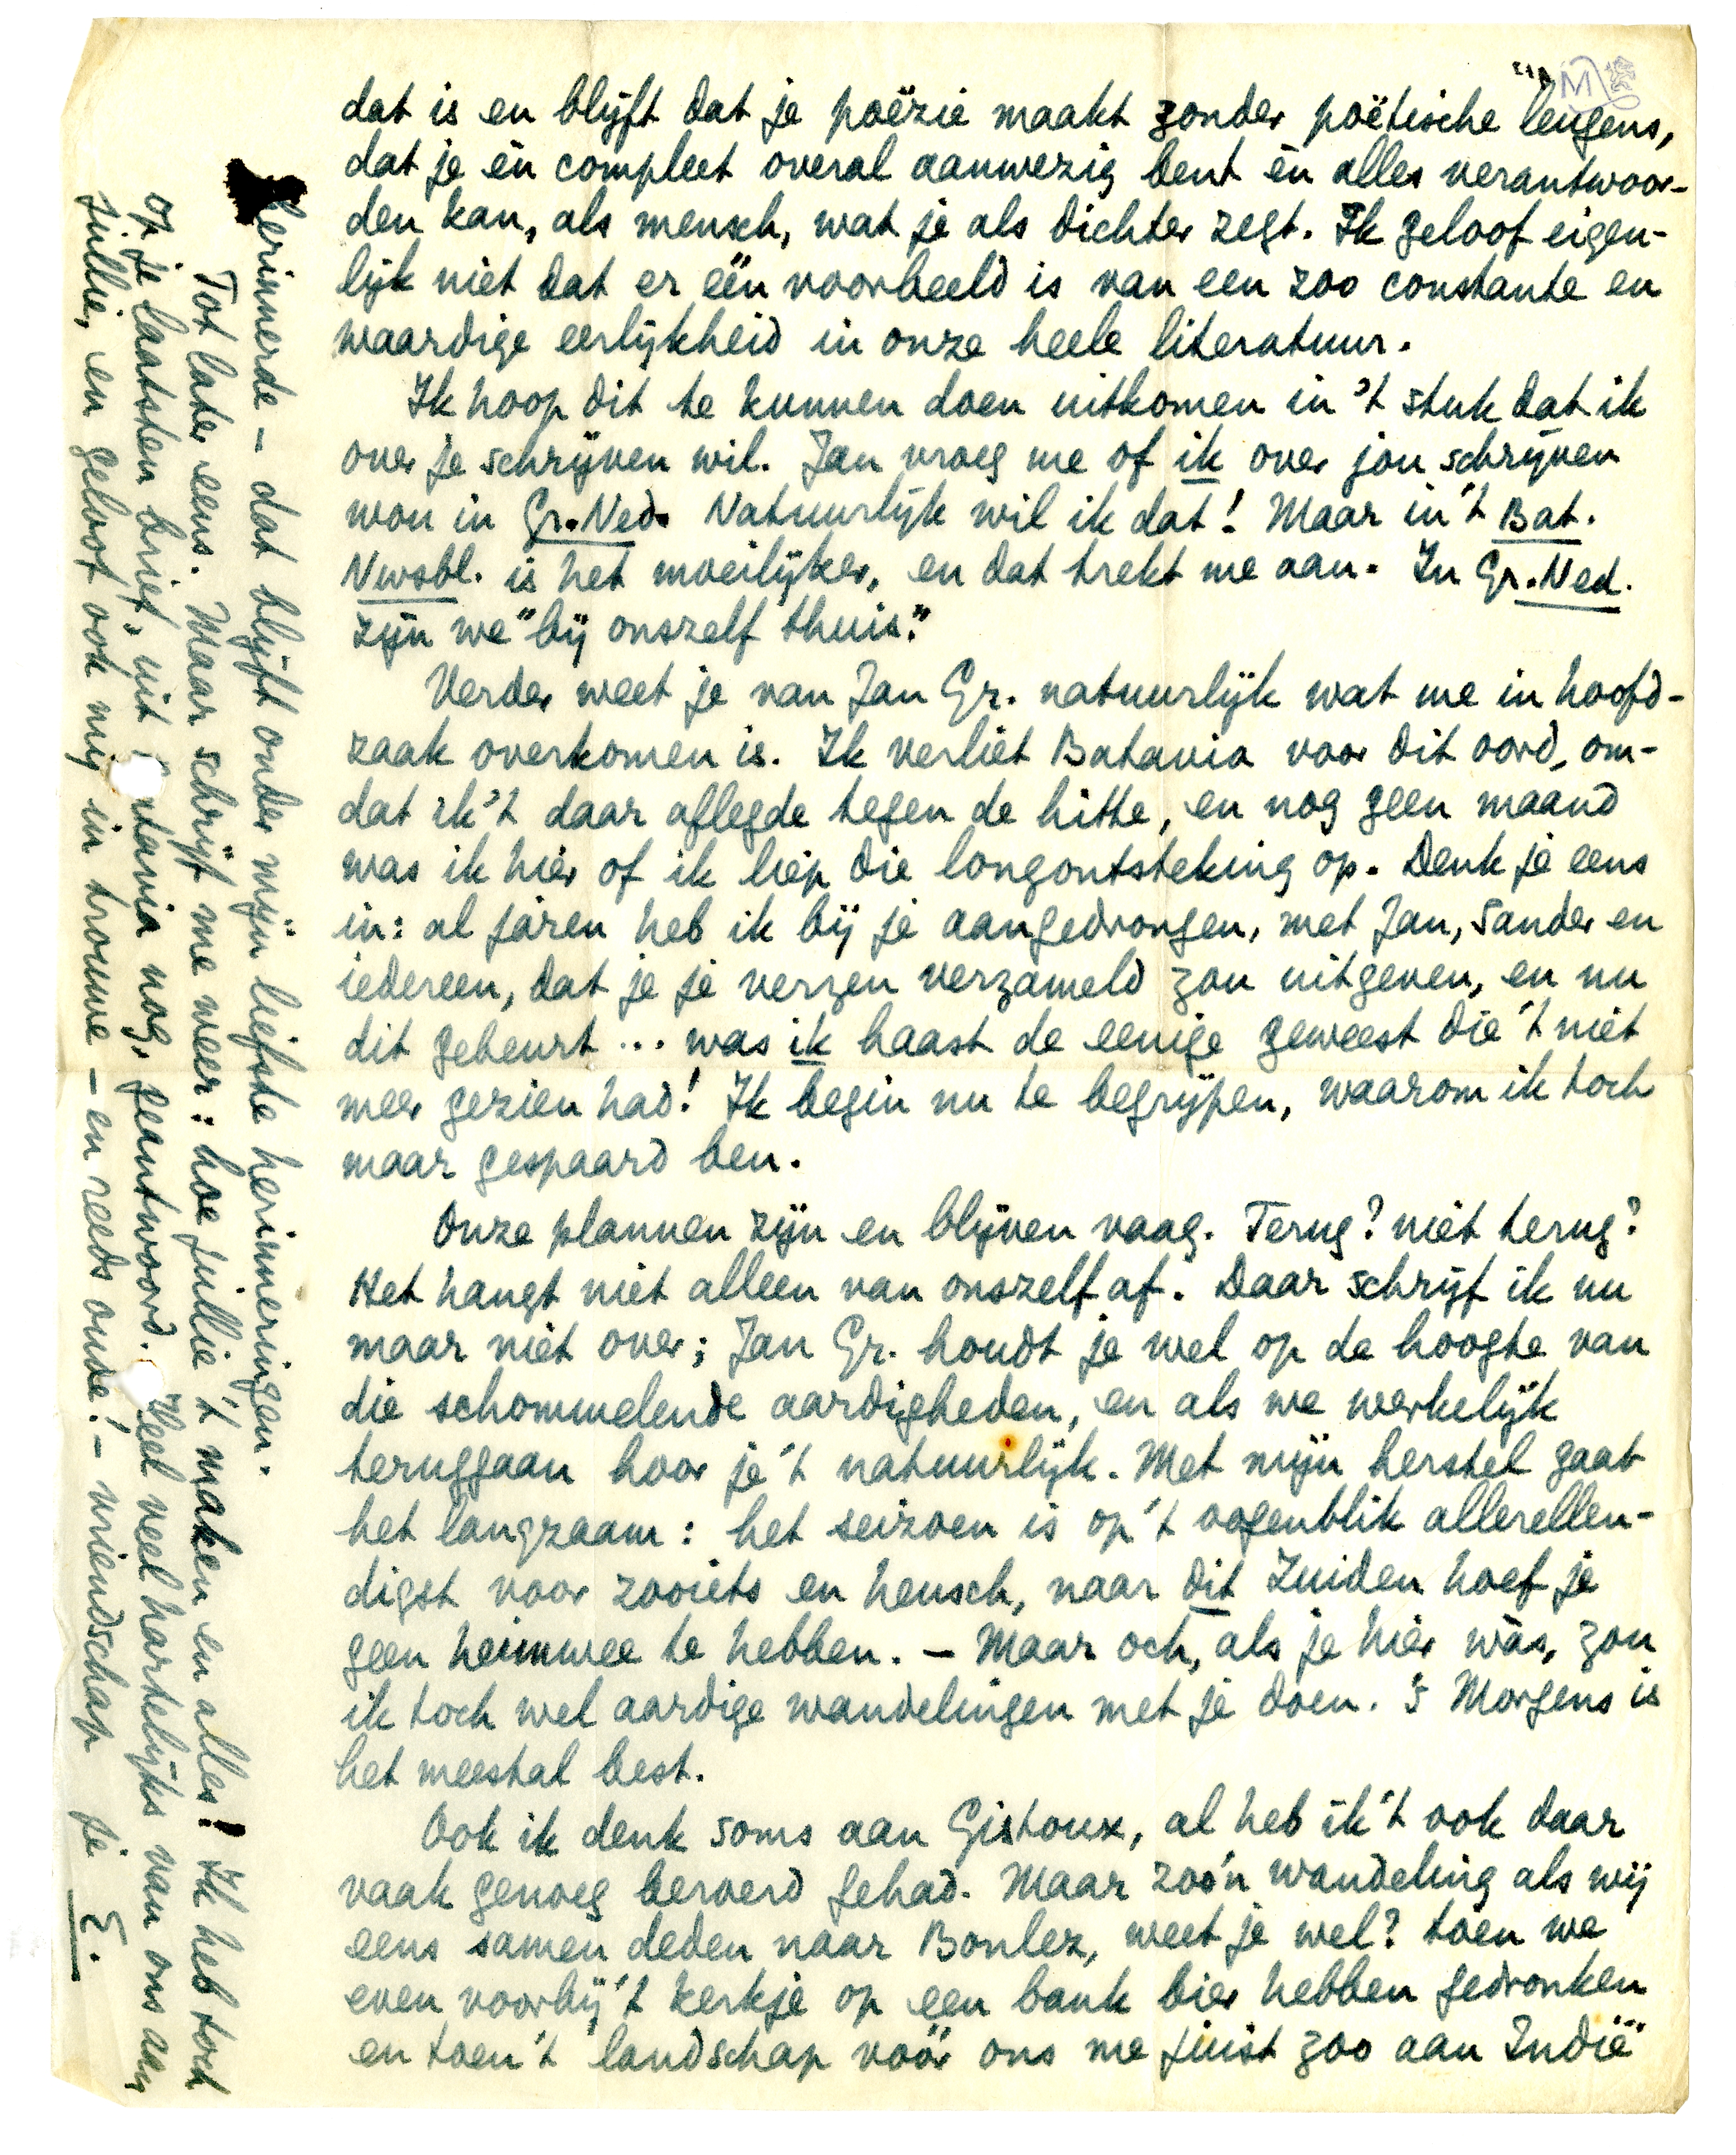 dat is en blijft dat je poëzie maakt zonder poëtische leugens,
dat je èn compleet overal aanwezig bent èn alles verantwoor-
den kan, als mensch, wat je als dichter zegt. Ik geloof eigen-
lijk niet dat er één voorbeeld is van een zoo constante en
waardige eerlijkheid in onze heele literatuur.
Ik hoop dit te kunnen doen uitkomen in 't stuk dat ik
over je schrijven wil. Jan vroeg me of ik over jou schrijven
wou in Gr. Ned. Natuurlijk wil ik dat! Maar in 't Bat.
Nwsbl. is het moeilijker, en dat trekt me aan. In Gr. Ned.
zijn we "bij onszelf thuis."
Verder weet je van Jan Gr. natuurlijk wat me in hoofd-
zaak overkomen is. Ik verliet Batavia voor dit oord, om-
dat ik 't daar aflegde tegen de hitte, en nog geen maand
was ik hier of ik liep die longontsteking op. Denk je eens
in: al járen heb ik bij je aangedrongen, met Jan, Sander en
iedereen, dat je je verzen verzameld zou uitgeven, en nu
dit gebeurt ... was ik haast de eenige geweest die 't niet
meer gezien had! Ik begin nu te begrijpen, waarom ik toch
maar gespaard ben.
Onze plannen zijn en blijven vaag. Terug? niet terug?
Het hangt niet alleen van onszelf af. Daar schrijf ik nu
maar niet over; Jan Gr. houdt je wel op de hoogte van
die schommelende aardigheden, en als we werkelijk
teruggaan hoor je 't natuurlijk. Met mijn herstel gaat
het langzaam: het seizoen is op 't oogenblik allerellen-
digst voor zooiets en heusch, naar dit Zuiden hoef je
geen heimwee te hebben. — Maar och, als je hier wàs, zou
ik toch wel aardige wandelingen met je doen. 's Morgens is
het meestal best.
Ook ik denk soms aan Gistoux, al heb ik 't ook daar
vaak genoeg beroerd gehad. Maar zoo'n wandeling als wij
eens samen deden naar Bonlez, weet je wel? toen we
even voorbij 't kerkje op een bank bier hebben gedronken
en toen 't landschap vóór ons me juist zoo aan Indië
herinnerde — dat blijft onder mijn liefste herinneringen.
Tot later eens. Maar schrijf me weer: hoe jullie 't maken en alles! Ik heb toch
op je laatsten brief, uit Batavia nog, geantwoord. Heel veel hartelijks van ons aan
jullie, en geloof ook mij in trouwe — en reeds oude! — vriendschap je E.
M